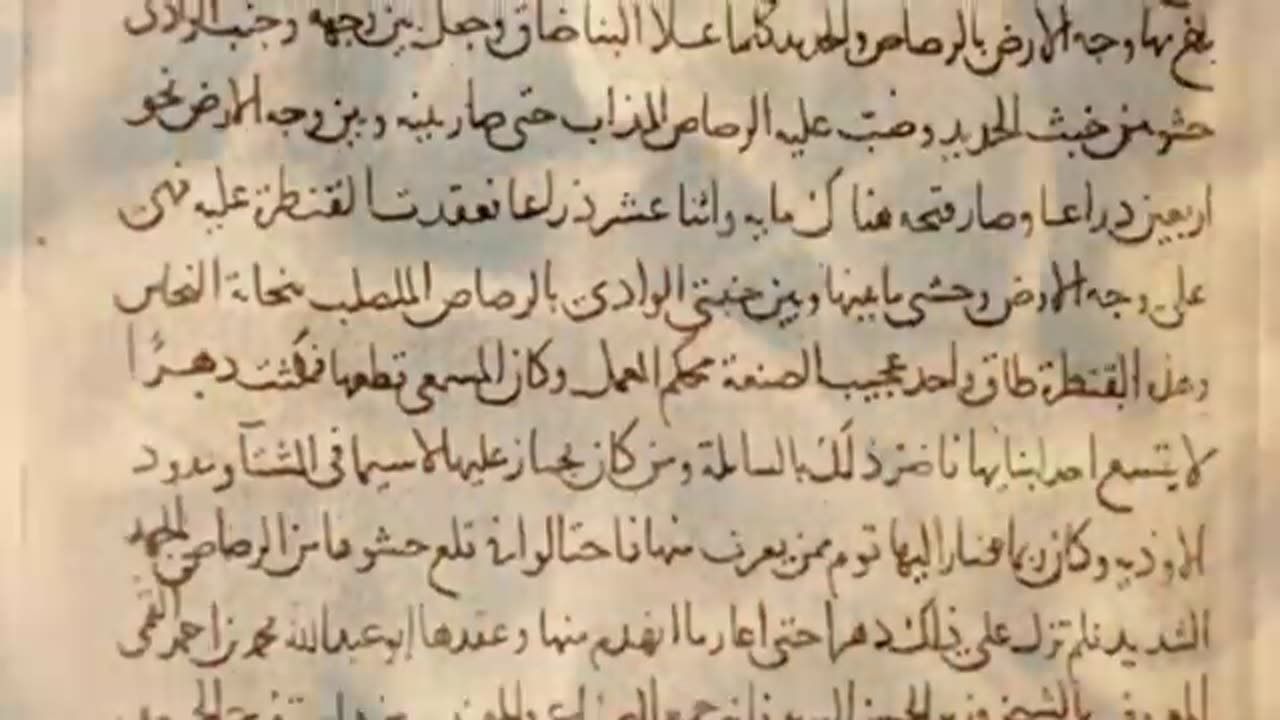 بقربها وجه الارض بالرصاص والحديد كلما علا البنا ضاق وجعل بين وجهه وجنب الوادى
حشو من خبث الحديد وصب عليه الرصاص المذاب حتى صار بينه وبين وجه الارض نحو
اربعين دراعا وصار فتحه هناك مايه واثنا عشر ذراعا فعقدت القنطرة عليه فهى
على وجه الارض وحشى ما بينها وبين جنبتى الوادى بالرصاص الملصلب بنحاتة النحاس
وهذه القنطرة طاق واحد عجيب الصنعة محكم العمل وكان المسمعى قطعها فمكثت دهرًا
لا يتسع احد لبنايها فاضر ذلك بالسابلة ومن كان يجتاز عليها لا سيما فى الشتآ ومدود
الاودية وكان ربما صار اليها قوم ممن يعرف منها فاحتالوا فى قلع حشوها من الرصاص بالجهد
الشديد فلم تزل على ذلك دهرا حتى اعاد ما انهدم منها وعقدها ابو عبد الله محمد بن احمد القمى
المعروف بالشيخ وزير الحسن